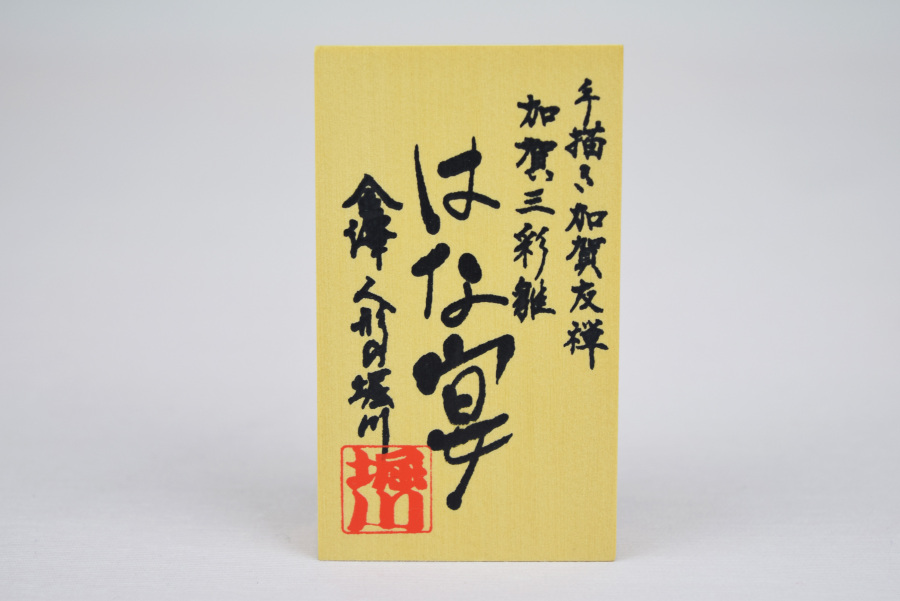 手描き加賀友禅
加賀三彩雛
はな宴
金澤 人形の堀川
堀川